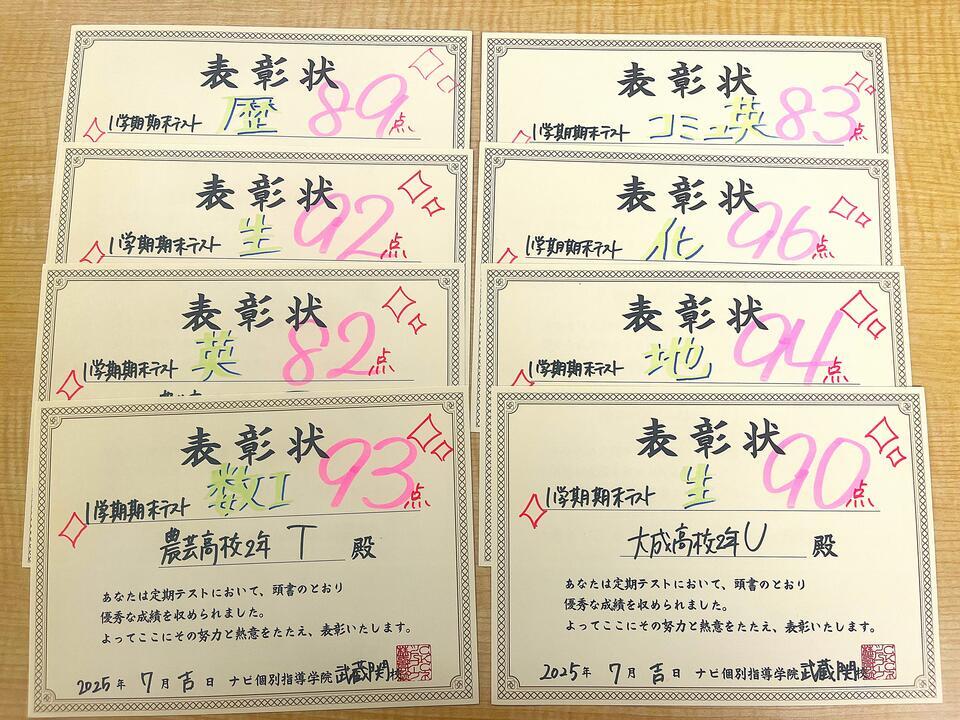 表彰状
1学期期末テスト 歴 89点
表彰状
1学期期末テスト 生 92点
表彰状
1学期期末テスト 英 82点
表彰状
1学期期末テスト 数I 93点
農芸高校2年 T 殿
あなたは定期テストにおいて、頭書のとおり
優秀な成績を収められました。
よってここにその努力と熱意をたたえ、表彰いたします。
2025年 7月吉日 ナビ個別指導学院 武蔵関校
表彰状
1学期期末テスト コミュ英 83点
表彰状
1学期期末テスト 化 96点
表彰状
1学期期末テスト 地 94点
表彰状
1学期期末テスト 生 90点
大成高校2年 U 殿
あなたは定期テストにおいて、頭書のとおり
優秀な成績を収められました。
よってここにその努力と熱意をたたえ、表彰いたします。
2025年 7月吉日 ナビ個別指導学院 武蔵関校